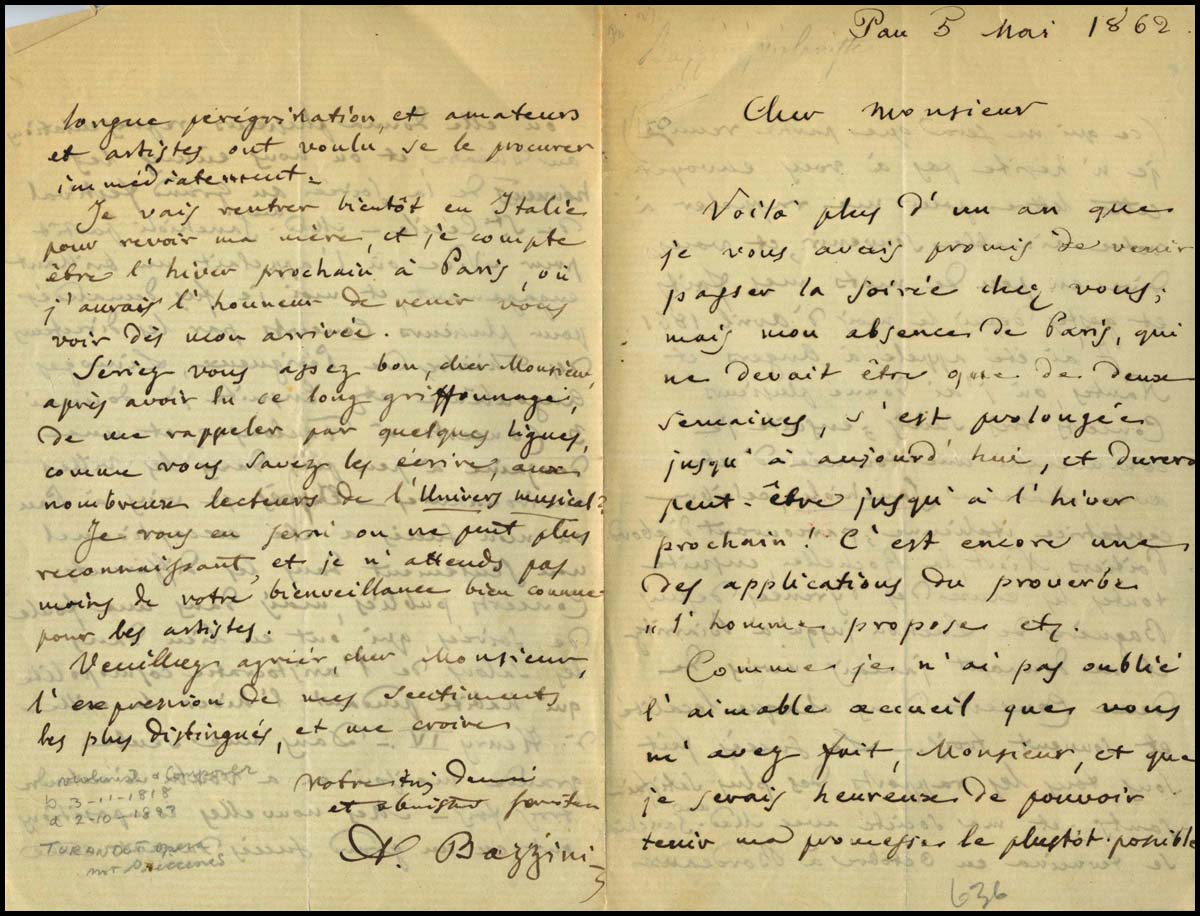 Pau 5 Mai 1862
Cher Monsieur
Voilà plus d'un an que
je vous avais promis de venir
passer la soirée chez vous;
mais mon absence de Paris, qui
ne devait être que de deux
semaines, s'est prolongée
jusqu'à aujourd'hui, et durera
peut-être jusqu'à l'hiver
prochain! C'est encore une
des applications du proverbe
"l'homme propose etz.
Comme je n'ai pas oublié
l'aimable accueil que vous
m'avez fait, Monsieur, et que
je serais heureux de pouvoir
tenir ma promesse le plustôt possible
636
longue pérégrination, et amateurs
et artistes ont voulu se le procurer
immédiatement.
Je vais rentrer bientôt en Italie
pour revoir ma mère, et je compte
être l'hiver prochain à Paris, où
j'aurais l'honneur de venir vous
voir dès mon arrivée.
Sériez vous assez bon, cher Monsieur,
après avoir lu ce long griffonnage,
de me rappeler par quelques lignes,
comme vous savez les écrire, aux
nombreux lecteurs de l'Univers musical?
Je vous en serai on ne peut plus
reconnaissant, et je n'attends pas
moins de votre bienveillance bien connue
pour les artistes.
Veuillez agriér, cher Monsieur,
l'expression de mes sentiments
les plus distingués, et me croire
Votre
et serviteur
A. Bazzini
violinist & composer
b 3-11-1818
d 2-10-1883
TURANDOT opera
not Puccini's